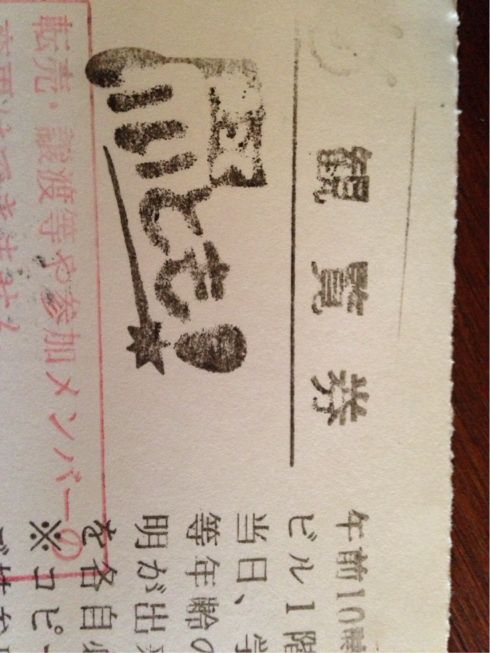 観覧券
いいとも!
転売・譲渡等や参加メンバーの
変更はできません
午前10時
ビル1階
当日、学
等年齢の
明が出来
を各自
※コピー